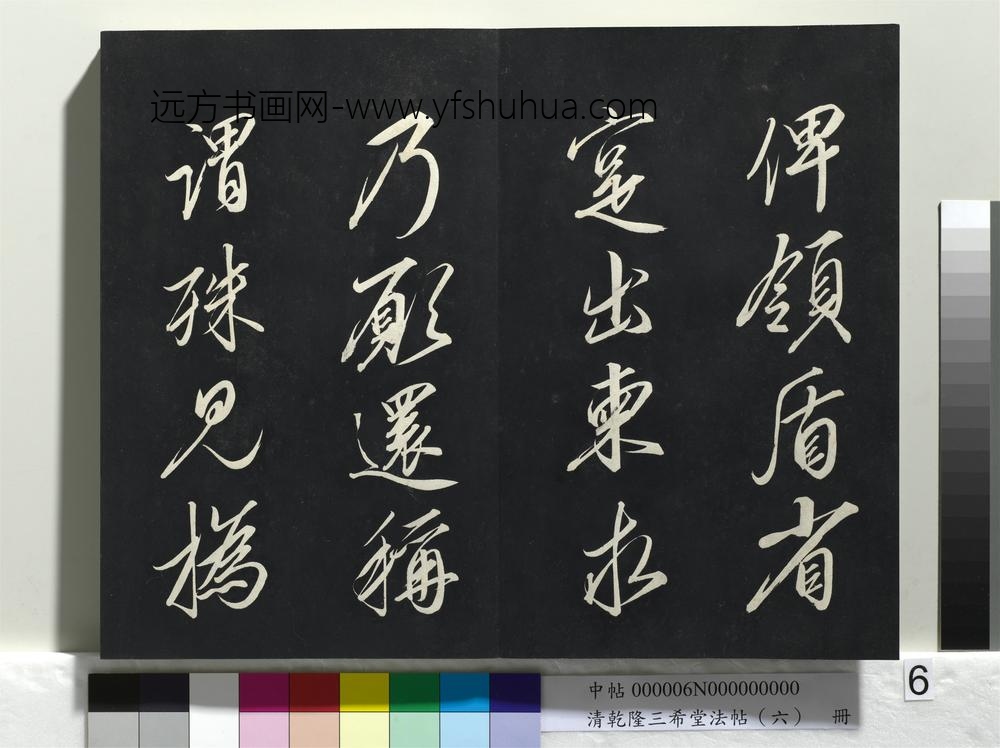 远方书画网-www.yfshuhua.com
俾領盾省
寔出柬求
乃願還稱
謂殊見撝
中帖 000006N000000000
清乾隆三希堂法帖（六） 冊
6